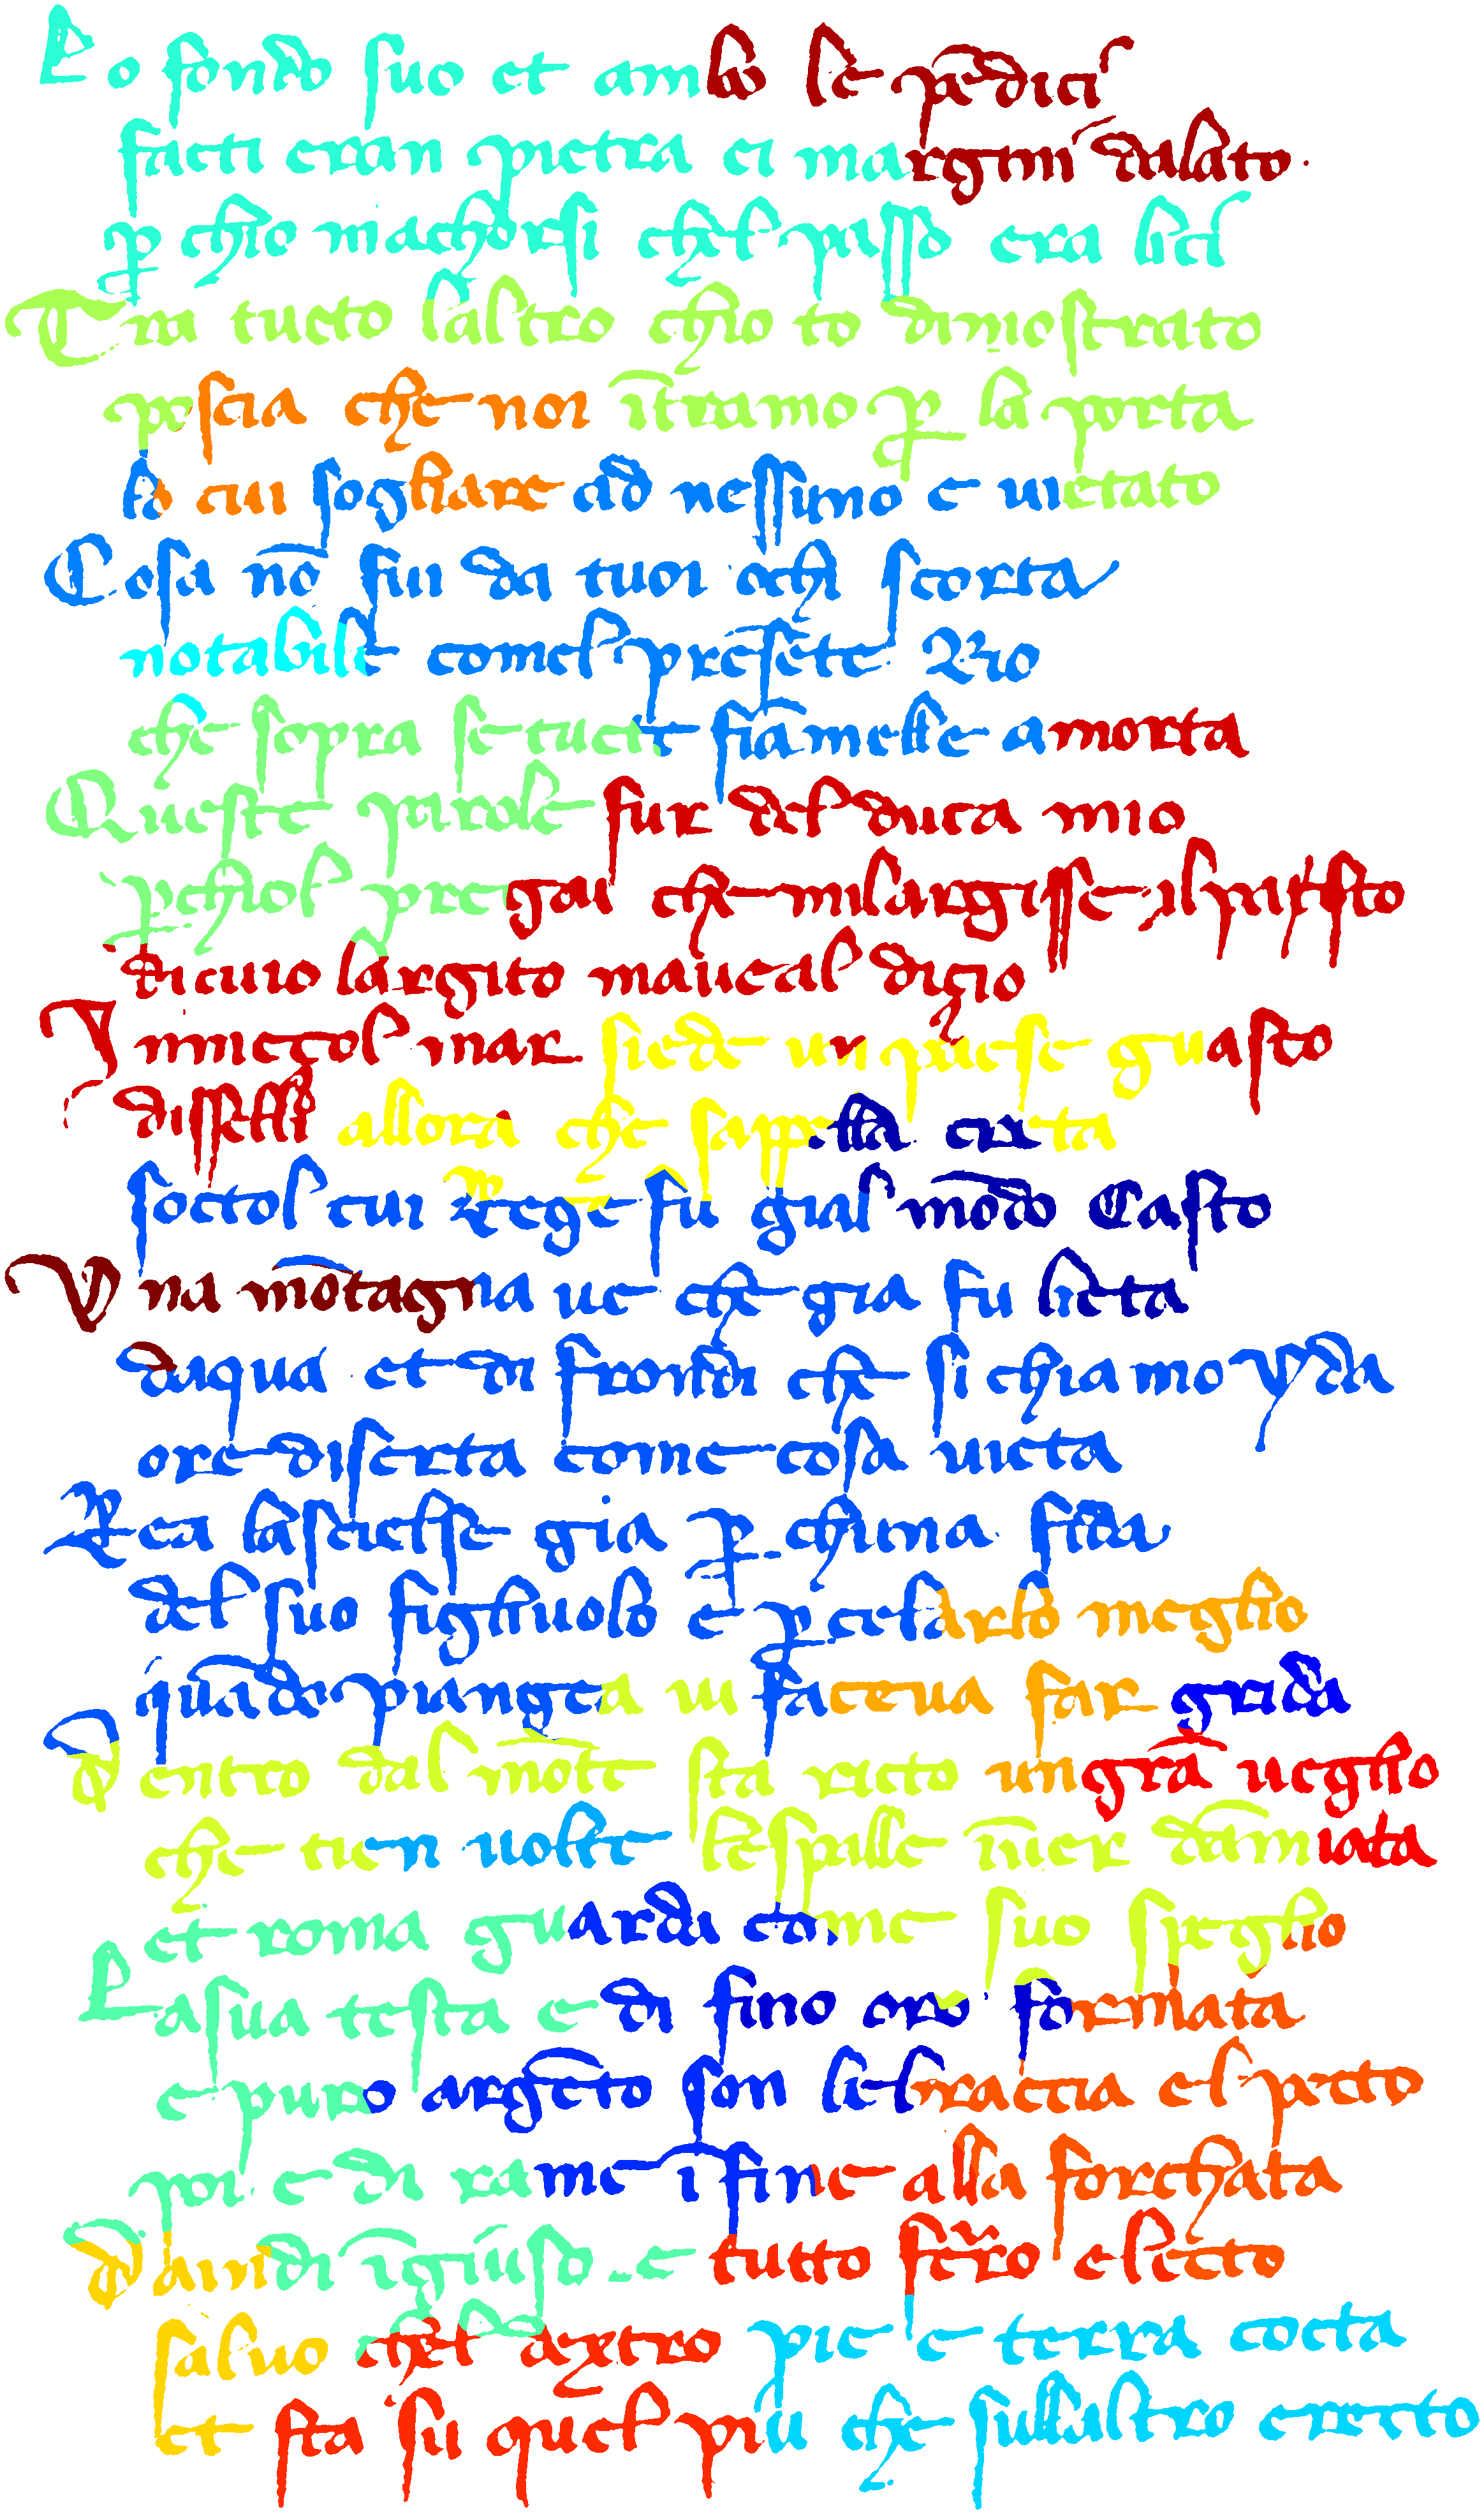 Lo fondo suo et ambo le pendici
fatti eran pietra e i margini dallato.
p chio macchorsi chel passo era lici
Tra tutto laltro chio to dimostrato
poscia che noi ītramo p la porta
lo cui sogliare ad nessuno e vietato
Cosa nō fu da tuoi occhi scorta
notabile comel presēte rio
che sopra se tucte fiamelle amorta
Queste parole fur del duca mio
perchiol pregai che milargisse il pasto
di cuio largito maveal disio
In mezzol mar siede un paese guasto
allora che sappella creta
soctol cui rege fu gial mōdo Casto
Una mōtagna ve che gia fu lieta
daqua et di fronda che si chiamo yda
ore diserta come cosa vieta
Rea lascelse gia p chuna fida
del suo figliuolo e p celarlo meglio
quādo piangea vi facea far grida
Dentro dal mōte sta recto un grā veglio
che tien volte le spalle īver damiata
et roma guarda come suo speglio
La sua testa e di fino oro formata
e puro argēto son le braccia el pecto
poi e di rame ifine alla forchata
Da indi īgiuso e tutto ferro electo
salvo chel dextro pie e terra cocta
et sta isu quel piu che sullaltro erecto